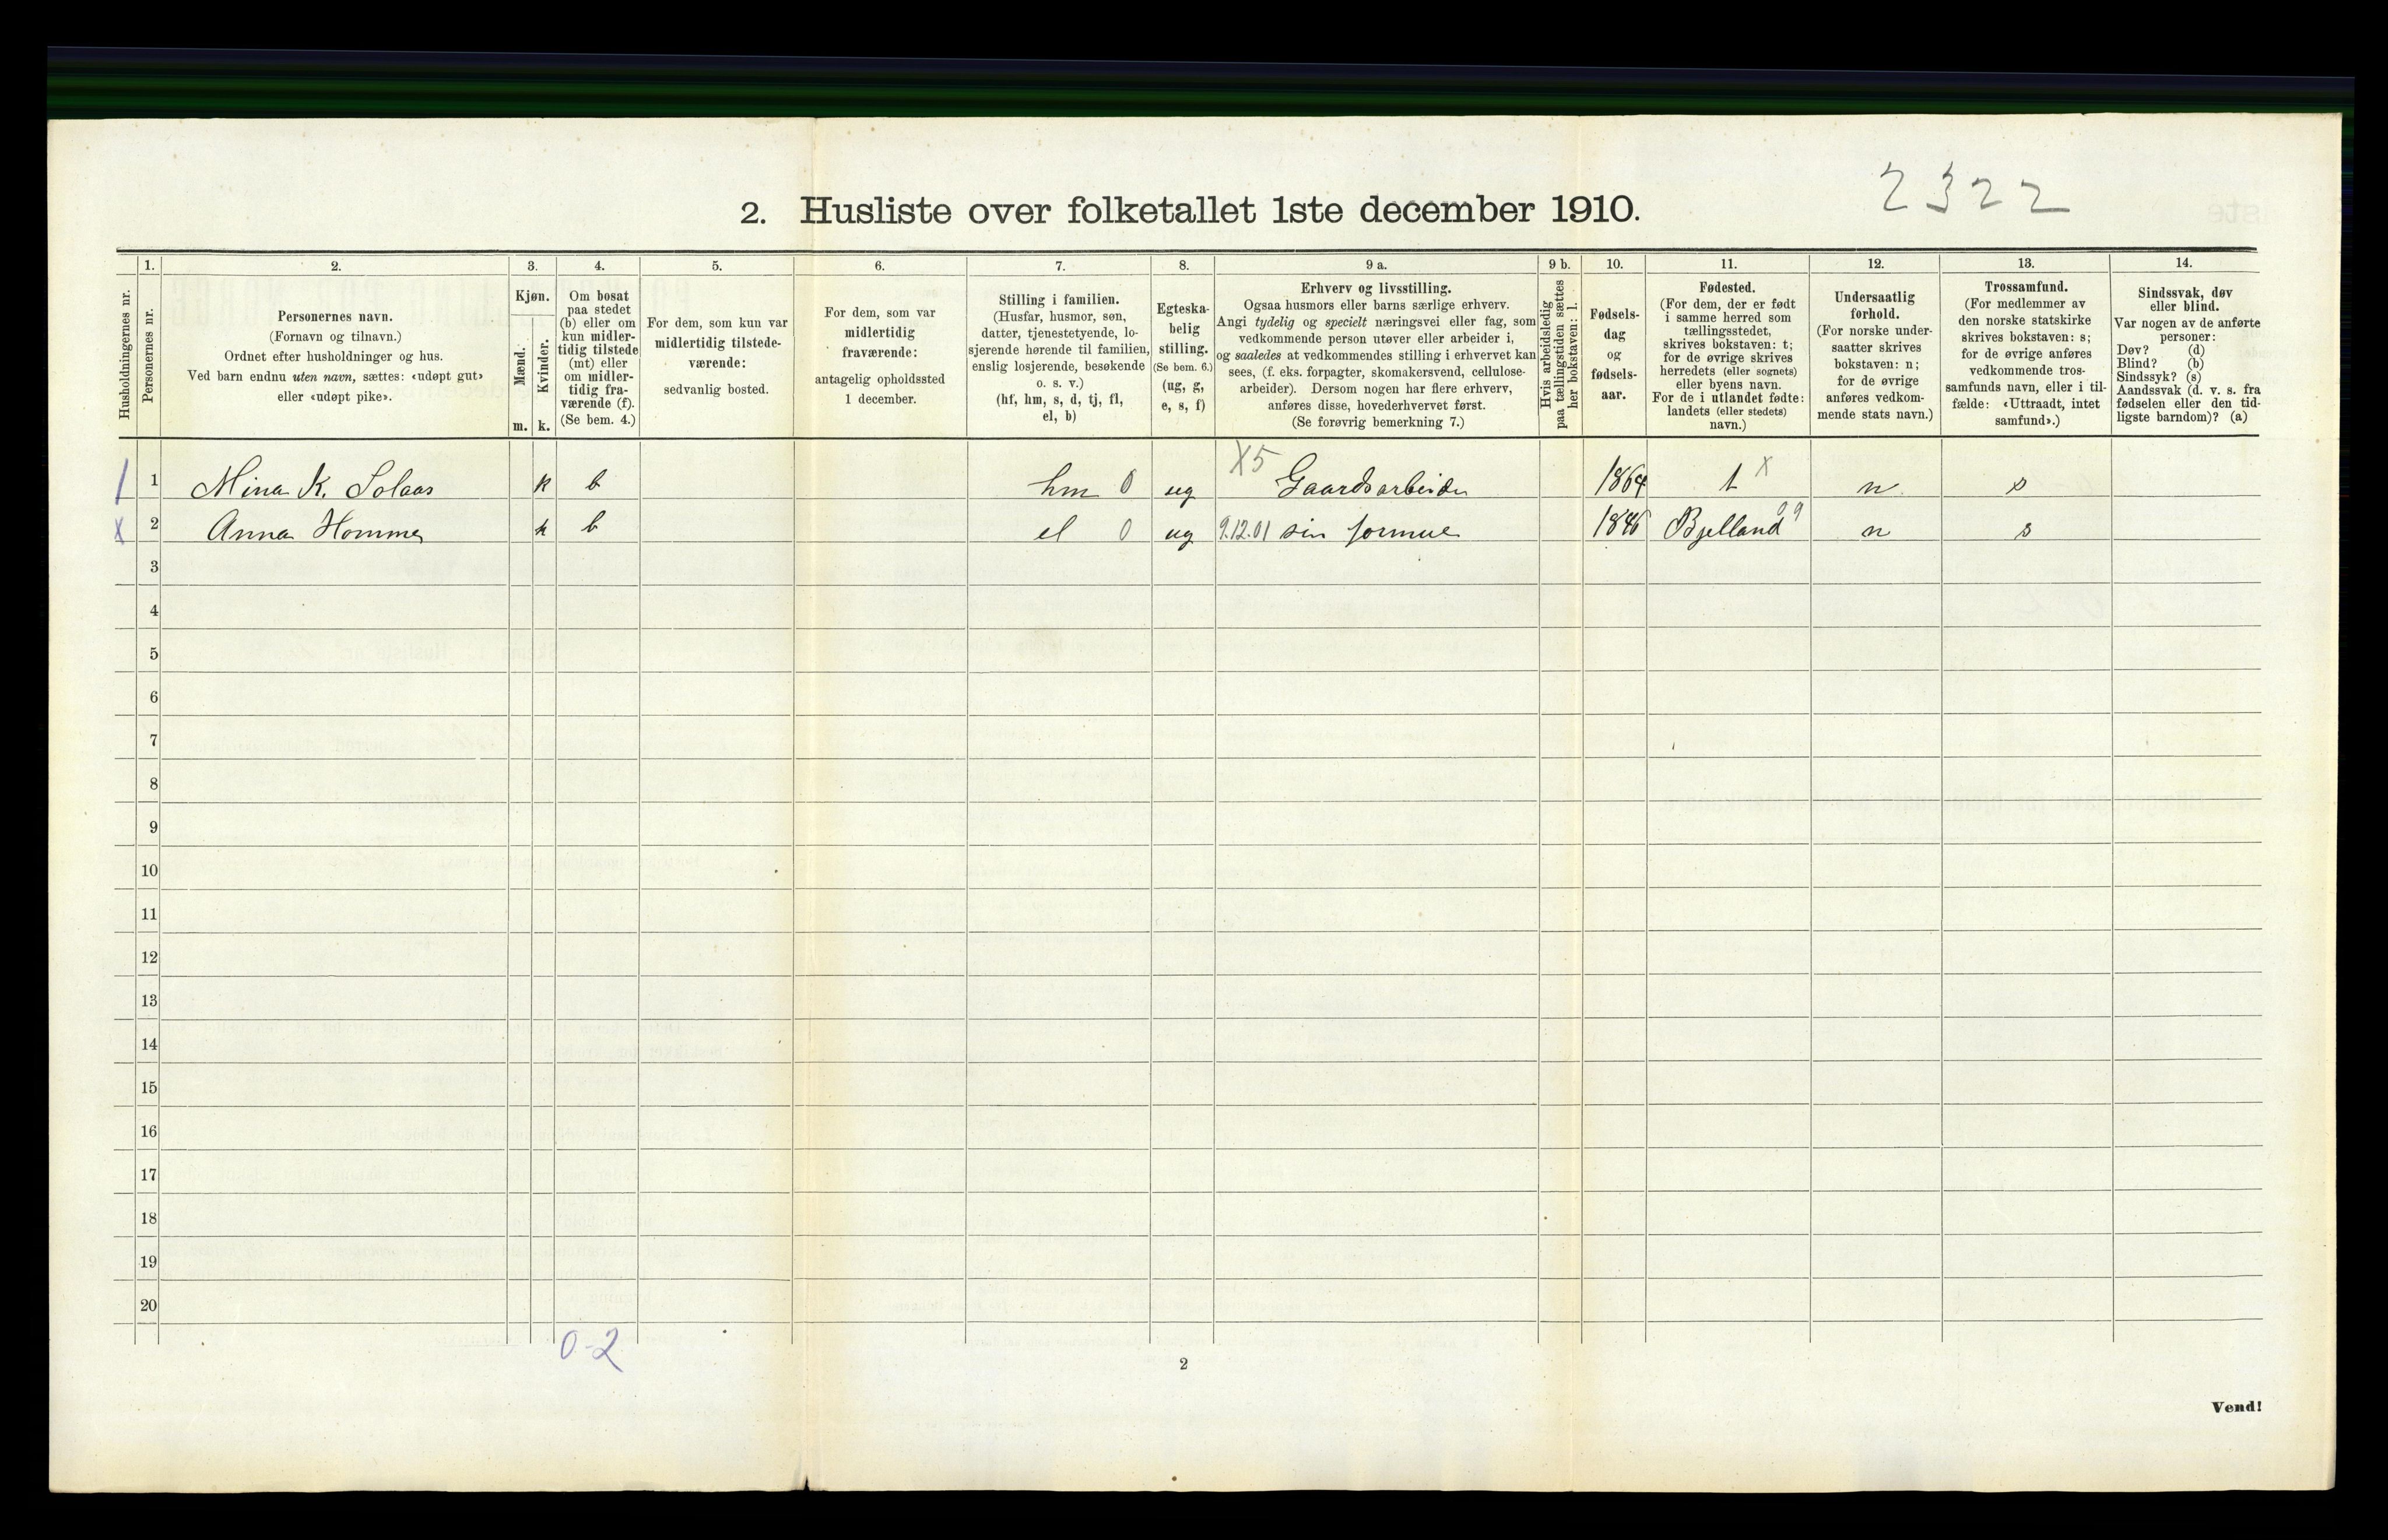 2322
2. Husliste over folketallet 1ste december 1910.
Husholdningernes nr.
1. Personernes nr.
2. Personernes navn.
(Fornavn og tilnavn.)
Ordnet efter husholdninger og hus.
Ved barn endnu uten navn, sættes: «udøpt gut»
eller «udøpt pike».
3. Kjøn.
Mænd. m.
Kvinder. k.
4. Om bosat
paa stedet
(b) eller om
kun midler-
tidig tilstede
(mt) eller
om midler-
tidig fra-
værende (f).
(Se bem. 4.)
5. For dem, som kun var
midlertidig tilstede-
værende:
sedvanlig bosted.
6. For dem, som var
midlertidig
fraværende:
antagelig opholdssted
1 december.
7. Stilling i familien.
(Husfar, husmor, søn,
datter, tjenestetyende, lo-
sjerende hørende til familien,
enslig losjerende, besøkende
o. s. v.)
(hf, hm, s, d, tj, fl,
el, b)
8. Egteska-
belig
stilling.
(Se bem. 6.)
(ug, g,
e, s, f)
9 a. Erhverv og livsstilling.
Ogsaa husmors eller barns særlige erhverv.
Angi tydelig og specielt næringsvei eller fag, som
vedkommende person utøver eller arbeider i,
og saaledes at vedkommendes stilling i erhvervet kan
sees, (f. eks. forpagter, skomakersvend, cellulose-
arbeider). Dersom nogen har flere erhverv,
anføres disse, hovederhvervet først.
(Se forøvrig bemerkning 7.)
9 b. Hvis arbeidsledig
paa tællingstiden sættes
her bokstaven: l.
10. Fødsels-
dag
og
fødsels-
aar.
11. Fødested.
(For dem, der er født
i samme herred som
tællingsstedet,
skrives bokstaven: t;
for de øvrige skrives
herredets (eller sognets)
eller byens navn.
For de i utlandet fødte:
landets (eller stedets)
navn.)
12. Undersaatlig
forhold.
(For norske under-
saatter skrives
bokstaven: n;
for de øvrige
anføres vedkom-
mende stats navn.)
13. Trossamfund.
(For medlemmer av
den norske statskirke
skrives bokstaven: s;
for de øvrige anføres
vedkommende tros-
samfunds navn, eller i til-
fælde: «Uttraadt, intet
samfund».)
14. Sindssvak, døv
eller blind.
Var nogen av de anførte
personer:
Døv? (d)
Blind? (b)
Sindssyk? (s)
Aandssvak (d. v. s. fra
fødselen eller den tid-
ligste barndom)? (a)
1 Mina K. Solaas k b hm 0 ug X5 Gaardsarbeider 1864 t x n s
x 2 Anna Homme k b el 0 ug 9.12.01 sin formue 1846 Bjelland 09 n s
3
4
5
6
7
8
9
10
11
12
13
14
15
16
17
18
19
20
0-2
2
Vend!